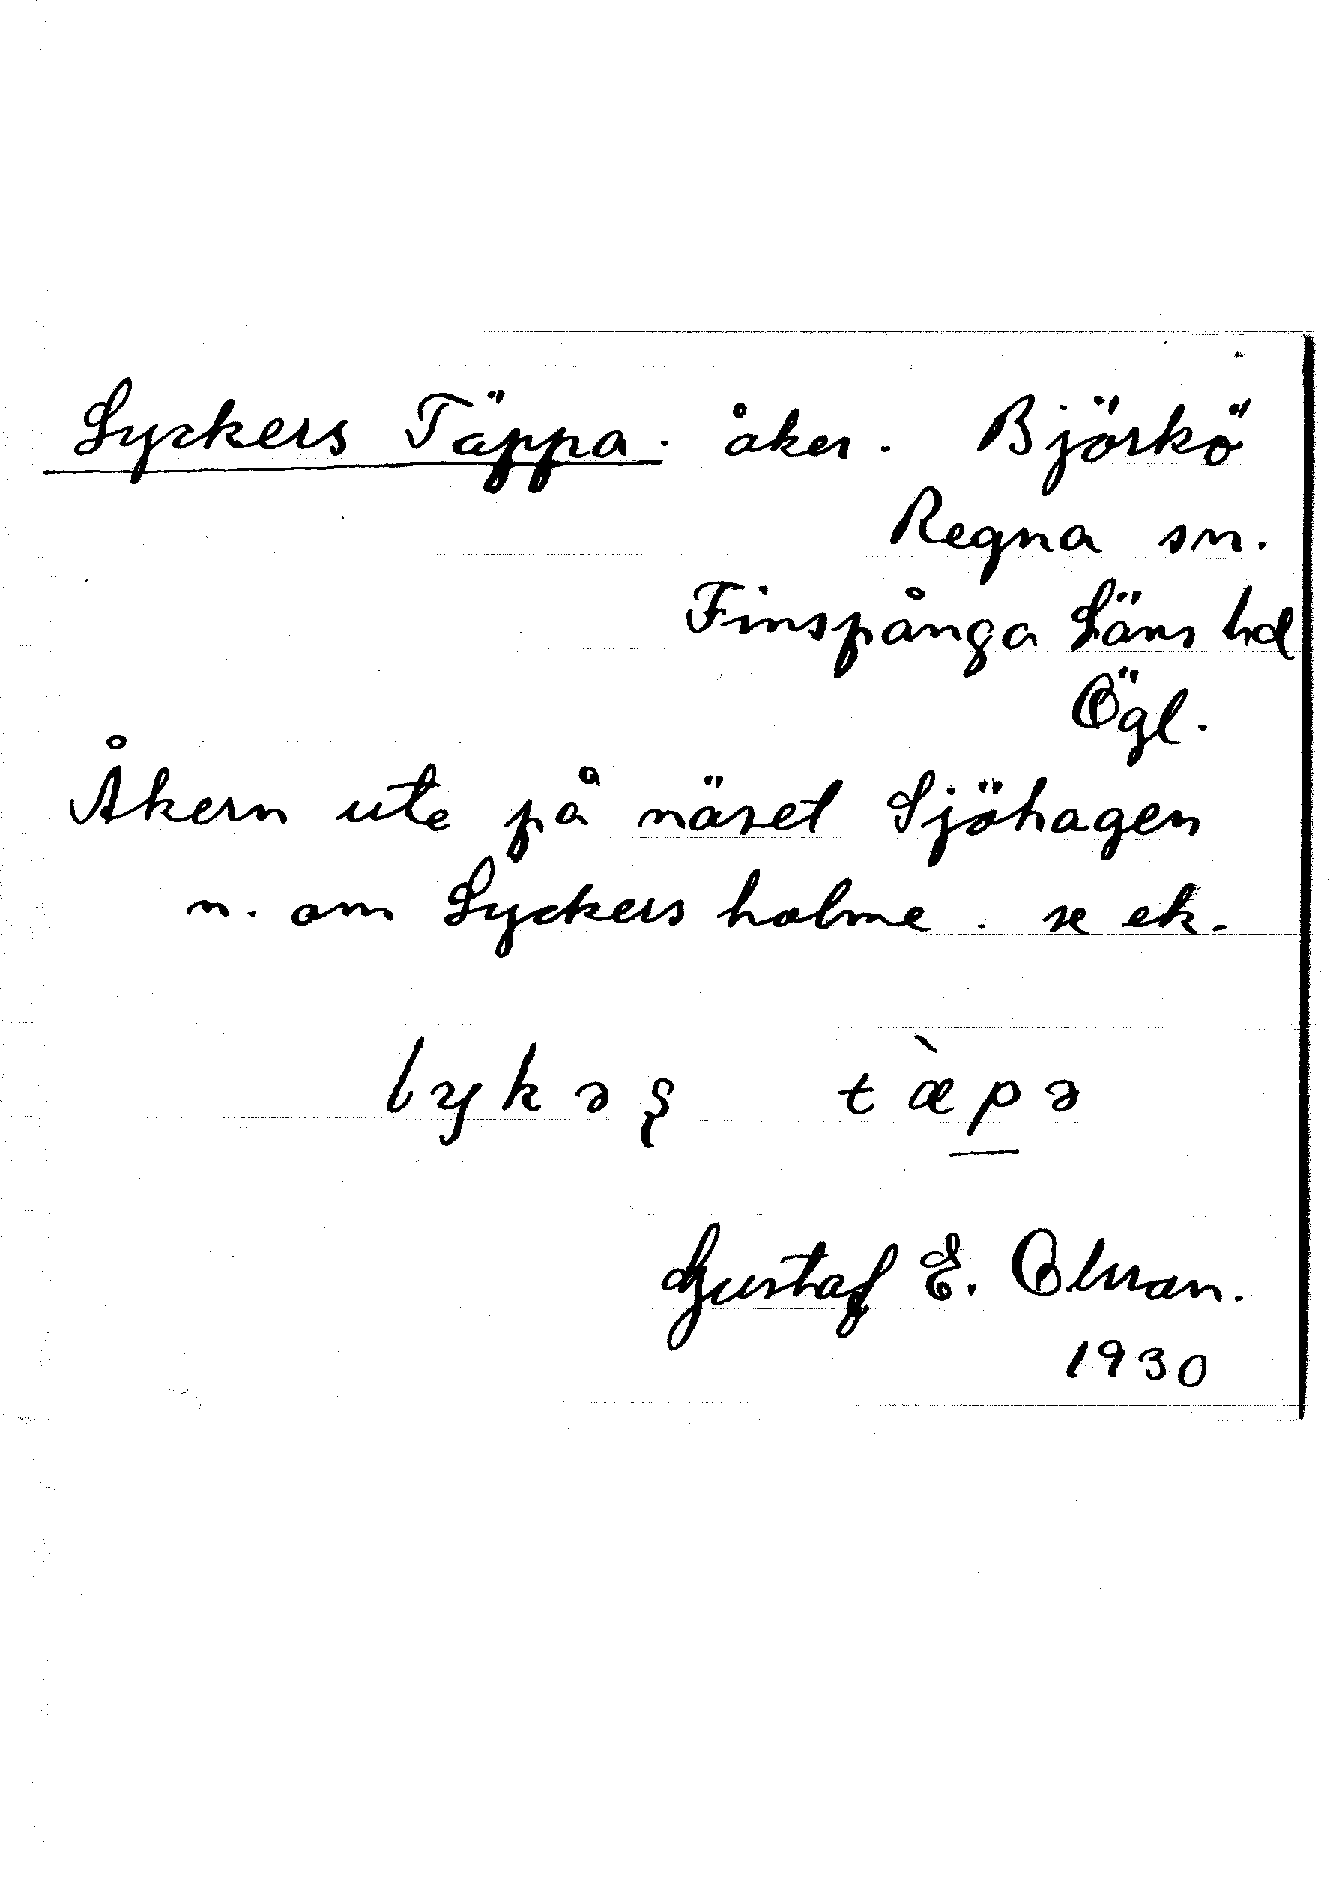 Lyckers Täppa. åker. Björkö
Regna sn.
Finspånga Läns hd
Ögl.
Åkern ute på näset Sjöhagen
n. om Lyckers holme. se ek.
lykəʂ tæ̀pə
Gustaf E. Olsson.
1930